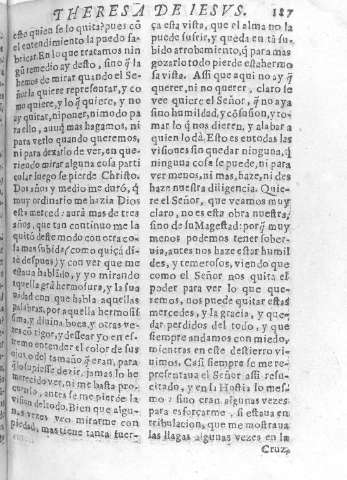 THERESA DE IESVS. 187
esto quien se lo quita? pues cõ
el entendimiento la puedo fa-
bricar. En lo que tratamos nin
gũ remedio ay desto, sino q̃ la
hemos de mirar quando el Se-
ñor la quiere representar, y co
mo quiere, y lo q̃ quiere, y no
ay quitar, ni poner, ni modo pa
ra ello, aunq̃ mas hagamos, ni
para verlo quando queremos,
ni para dexarlo de ver, en que-
riendo mirar alguna cosa parti
cular luego se pierde Christo.
Dos años y medio me duró, q̃
muy ordinario me hazia Dios
esta merced: aurà mas de tres
años, que tan continuo me la
quitò deste modo con otra co-
sa mas subida (como quiça di-
rè despues) y con ver que me
estaua hablãdo, y yo mirando
aquella grã hermosura, y la sua
uidad con que habla aquellas
palabras, por aquella hermosis
sima, y diuina boca, y otras ve-
zes cõ rigor, y dessear yo en es-
tremo entender el color de sus
ojos o del tamaño q̃ eran, para
q̃ lo supiesse dezir, jamas lo he
merecido ver, ni me basta pro-
curarlo, antes se me pierde la
vision del todo. Bien que algu-
nas vezes veo mirarme con
piedad, mas tiene tanta fuer-
ça esta vista, que el alma no la
puede sufrir, y queda en tã su-
bido arrobamiento, q̃ para mas
gozarlo todo pierde esta hermo
sa vista. Assi que aqui no ay q̃
querer, ni no querer, claro se
vee quiere el Señor, q̃ no aya
sino humildad, y cõfusion, y to-
mar lo q̃ nos dieren, y alabar a
quien lo dà. Esto es en todas las
visiones sin quedar ninguna, q̃
ninguna cosa se puede, ni para
ver menos, ni mas, haze, ni des
haze nuestra diligencia. Quie-
re el Señor, que veamos muy
claro, no es esta obra nuestra,
sino de su Magestad: porq̃ muy
menos podemos tener sober-
uia, antes nos haze estar humil
des, y temerosos, viendo que
como el Señor nos quita el
poder para ver lo que que-
remos, nos puede quitar estas
mercedes, y la gracia, y que-
dar perdidos del todo, y que
siempre andamos con miedo,
mientras en este destierro vi-
uimos. Casi siempre se me re-
presentaua el Señor assi resu-
citado, y en la Hostia lo mes-
mo: sino eran algunas vezes
para esforçarme, si estaua en
tribulacion, que me mostraua
las llagas algunas vezes en la
Cruz,